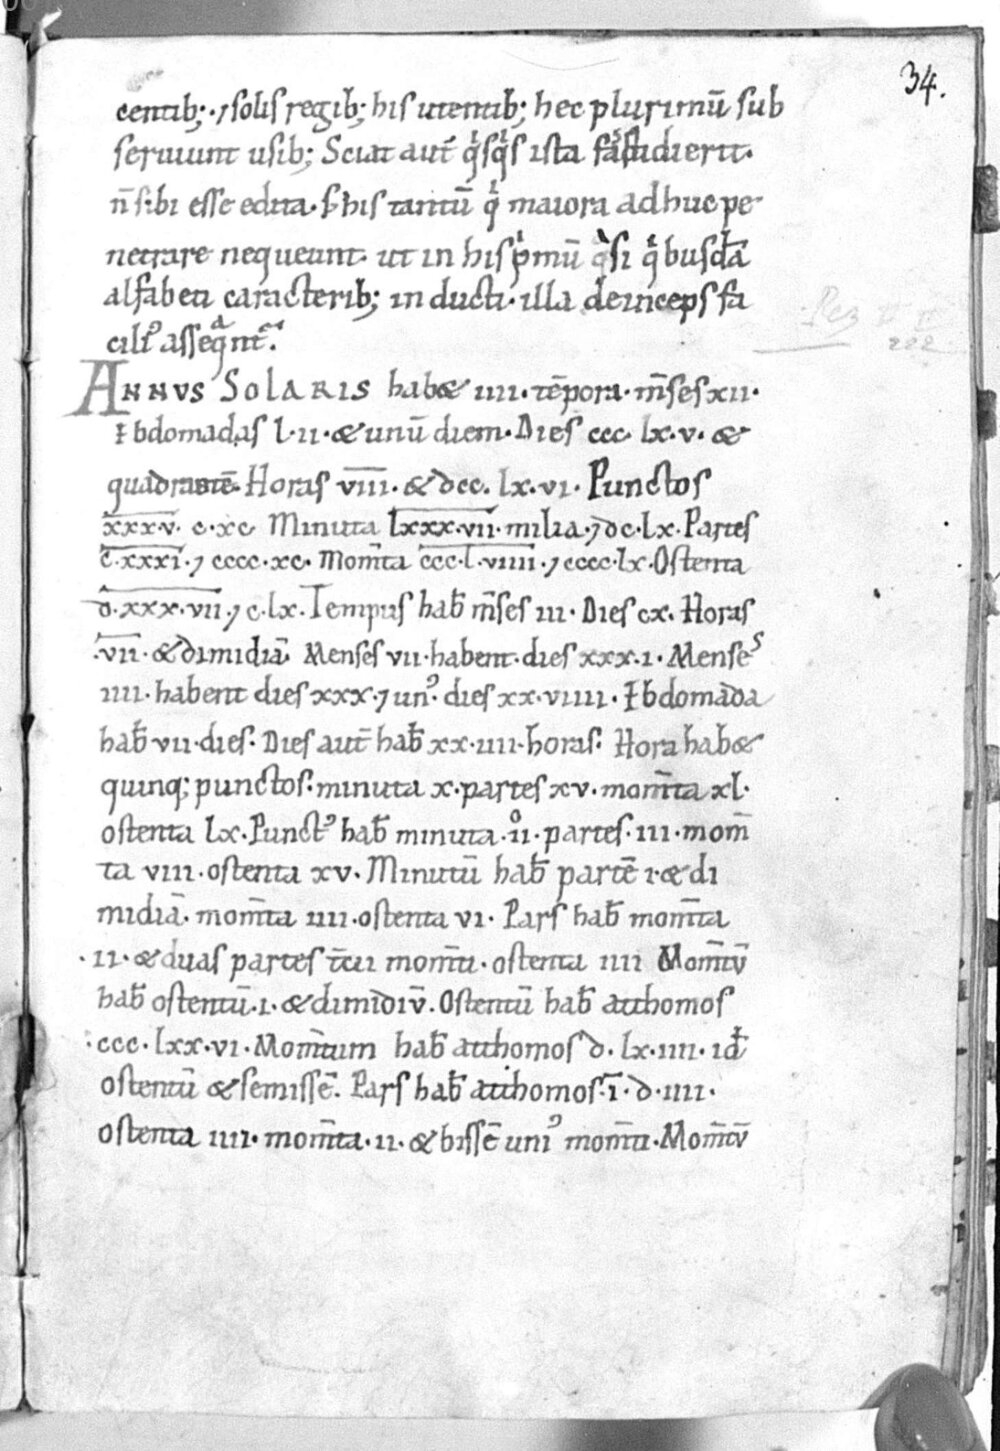 34.
centib; ·⁊ solis regib; his utentib; hec plurimū sub
seruiunt usib; Sciat aut̄ qⁱsqⁱs ista fastidierit.
n̄ sibi esse edita. s; his tantū qⁱ maiora adhuc pe
netrare nequeunt. ut in his pⁱmū qᵃsi qⁱbusdā
alfabeti caracterib; inducti. illa deinceps fa
ciliꝰ asseqᵃnt᷑.
ANNVS SOLARIS habet IIII. tēpora. m̄ses XII.
Ebdomadas L.II. & unū diem. Dies ccc. lx.v. &
quadrantē. Horas v̅i̅i̅i̅. & dcc. lx.vi. Punctos
x̅x̅x̅.v̅. c.xc. Minuta l̅x̅x̅x̅.v̅i̅i̅. milia. ⁊ dc.lx. Partes
c̅.x̅x̅x̅i̅. ⁊ cccc.xc. Mom̄ta c̅c̅c̅.l̅.v̅i̅i̅i̅i̅. ⁊ cccc.lx. Ostenta
d̅.x̅x̅x̅.v̅i̅i̅. ⁊ c.lx. Tempus hab̄ m̄ses iii. Dies cx. Horas
.vii. & dimidiā. Menses vii. habent. dies xxx.i. Menses
iiii. habent dies xxx. ⁊ unꝰ. dies xx.viiii. Ebdomada
hab̄ vii. dies. Dies aut̄ hab̄ xx.iiii. horas. Hora habet
quinq; punctos. minuta x. partes xv. mom̄ta xl.
ostenta lx. Punctꝰ hab̄ minuta .ii. partes. iii. mom̄
ta viii. ostenta xv. Minutū hab̄ partē i. & di
midiā. mom̄ta iiii. ostenta vi. Pars hab̄ mom̄ta
.ii. & duas partes t̄cii mom̄ti. ostenta iiii Mom̄tū
hab̄ ostentū .i. & dimidiū. Ostentū hab̄ atthomos
.ccc. lxx.vi. Mom̄tum hab̄ atthomos d. lx.iiii. id̄
ostentū & semissē. Pars hab̄ atthomos. ī. d. iiii.
ostenta iiii. mom̄ta .ii. & bissē uniꝰ mom̄ti. Mom̄tū